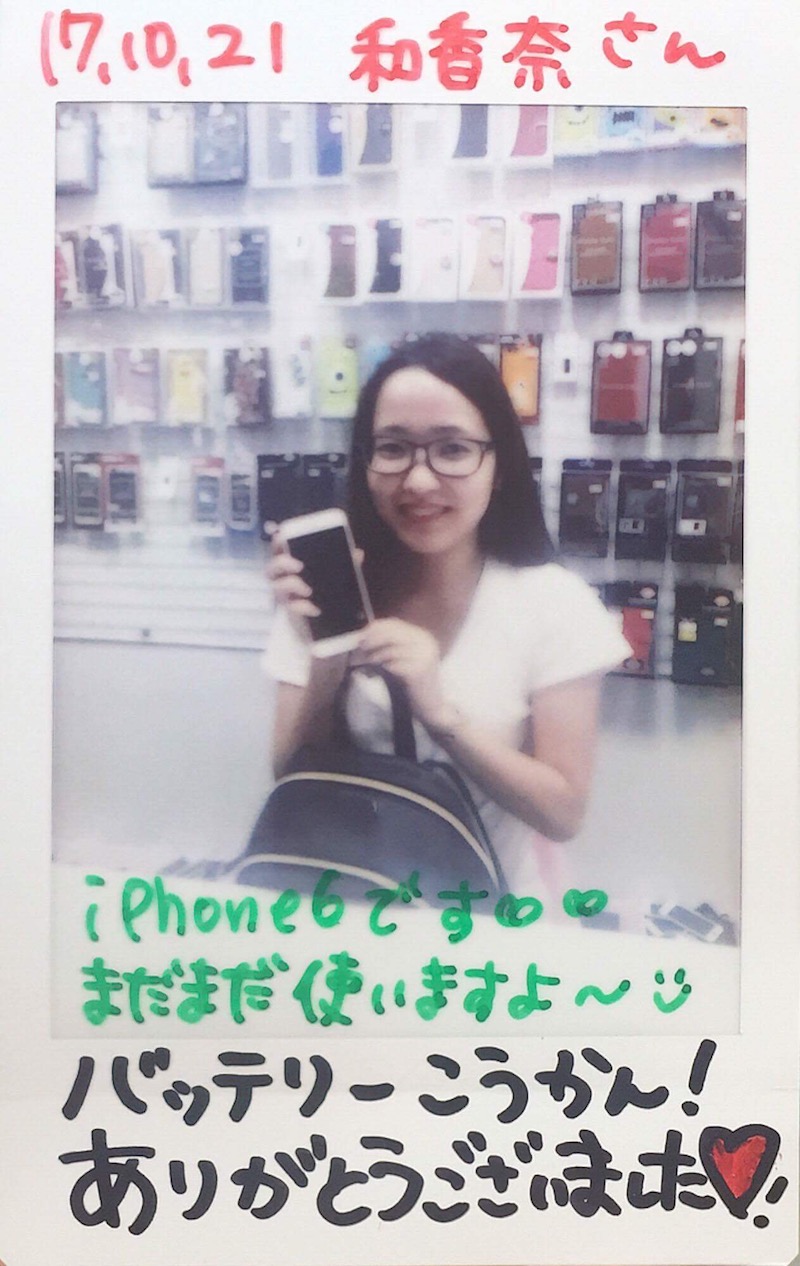 17.10.21 和香奈さん
iPhone6です♡♡
まだまだ使いますよ～
バッテリーこうかん!
ありがとうございました♡!